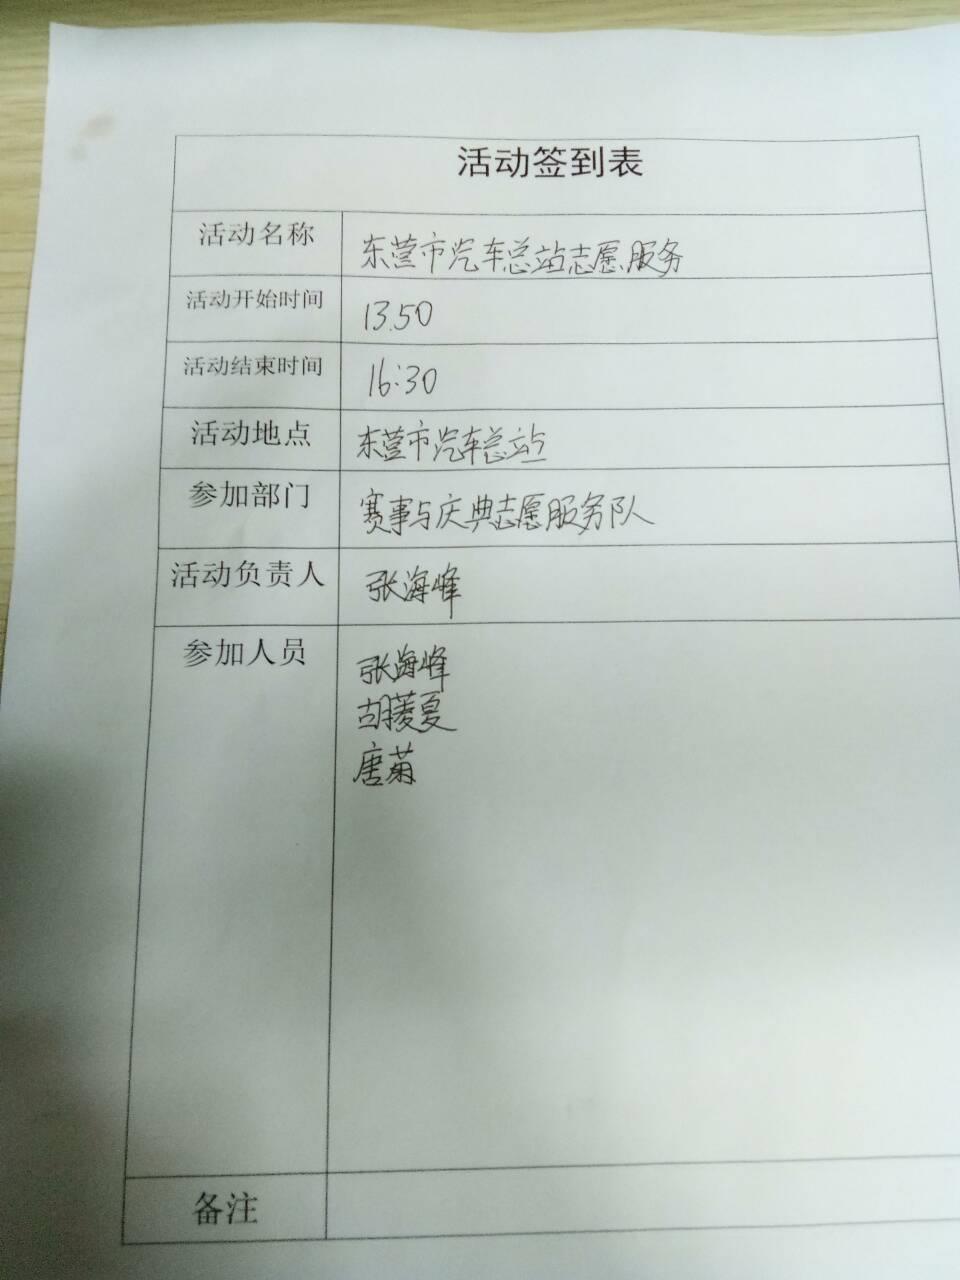 活动签到表
活动名称 东营市汽车总站志愿服务
活动开始时间 13.50
活动结束时间 16:30
活动地点 东营市汽车总站
参加部门 赛事与庆典志愿服务队
活动负责人 张海峰
参加人员 张海峰
胡蔆夏
唐菊
备注